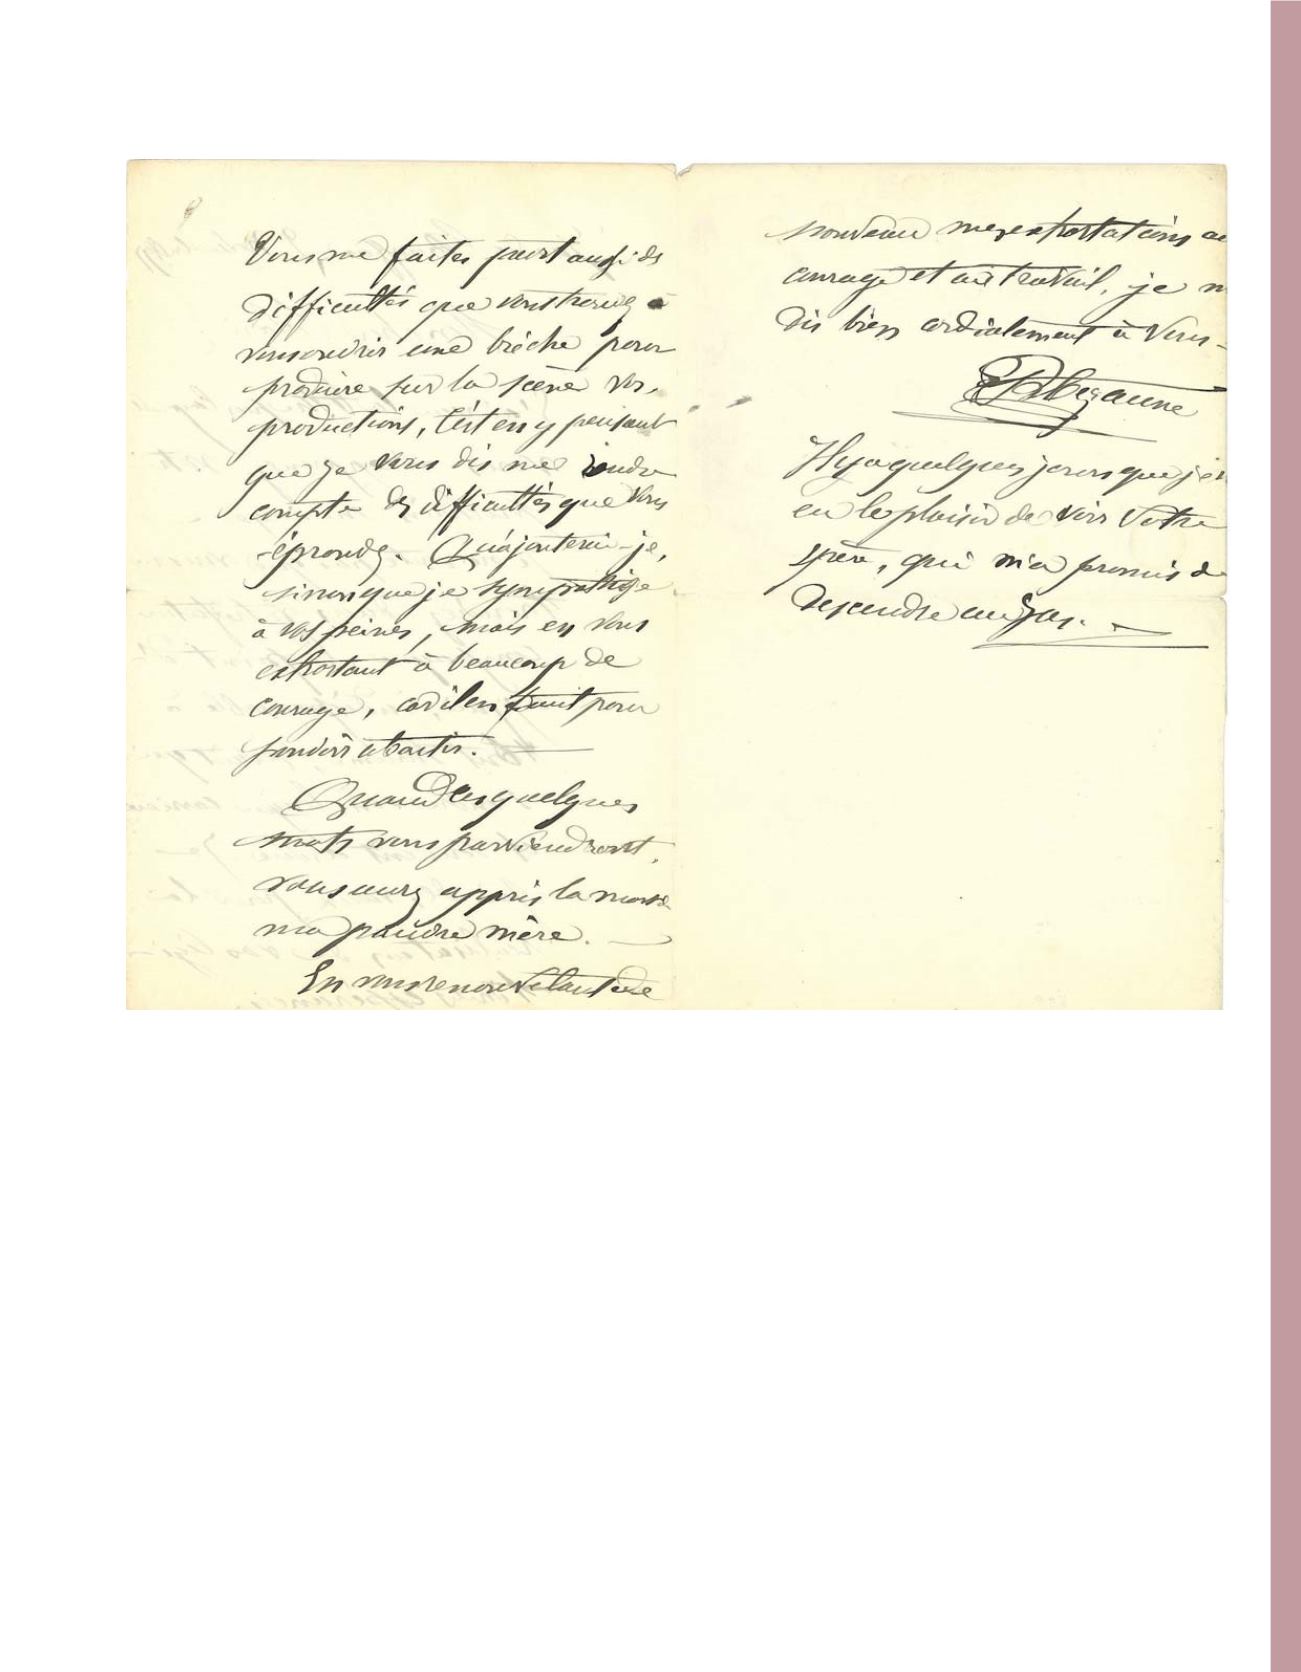 Vous me faites part aussi des
difficultés que vous trouvez à
vous ouvrir une brèche pour
produire sur la scène vos
productions, C'est en y pensant
que je vous dis me rendre
compte des difficultés que vous
éprouvez. Qu'ajouterai-je,
sinon que je sympathise
à vos peines, mais en vous
exhortant à beaucoup de
courage, car il en faut pour
pouvoir aboutir.
Quand ces quelques
mots vous parviendront,
vous aurez appris la mort de
ma pauvre mère.
En vous renouvelant de
nouveau mes exhortations au
courage et au travail, je m
dis bien cordialement à Vous
Il y a quelques jours que j'ai
eu le plaisir de voir Votre
père, qui m'a promis de
descendre au